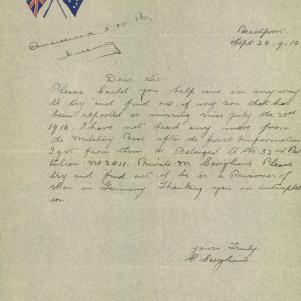 Beachport
Sept 28-9-16
Dear Sir
Please Could you help me in any way
to try and find out if my son that has
been reported as missing since July the 20th
1916. I have not heard any more from
de Military Best after de first information
I got from them. He Belonged to the 32nd Bat
talion. no 2011. Private M. Coniglione. Please
try and find out if he is a Prisoner of
War in Germany Thanking you in anticipat
ion
yours Truly